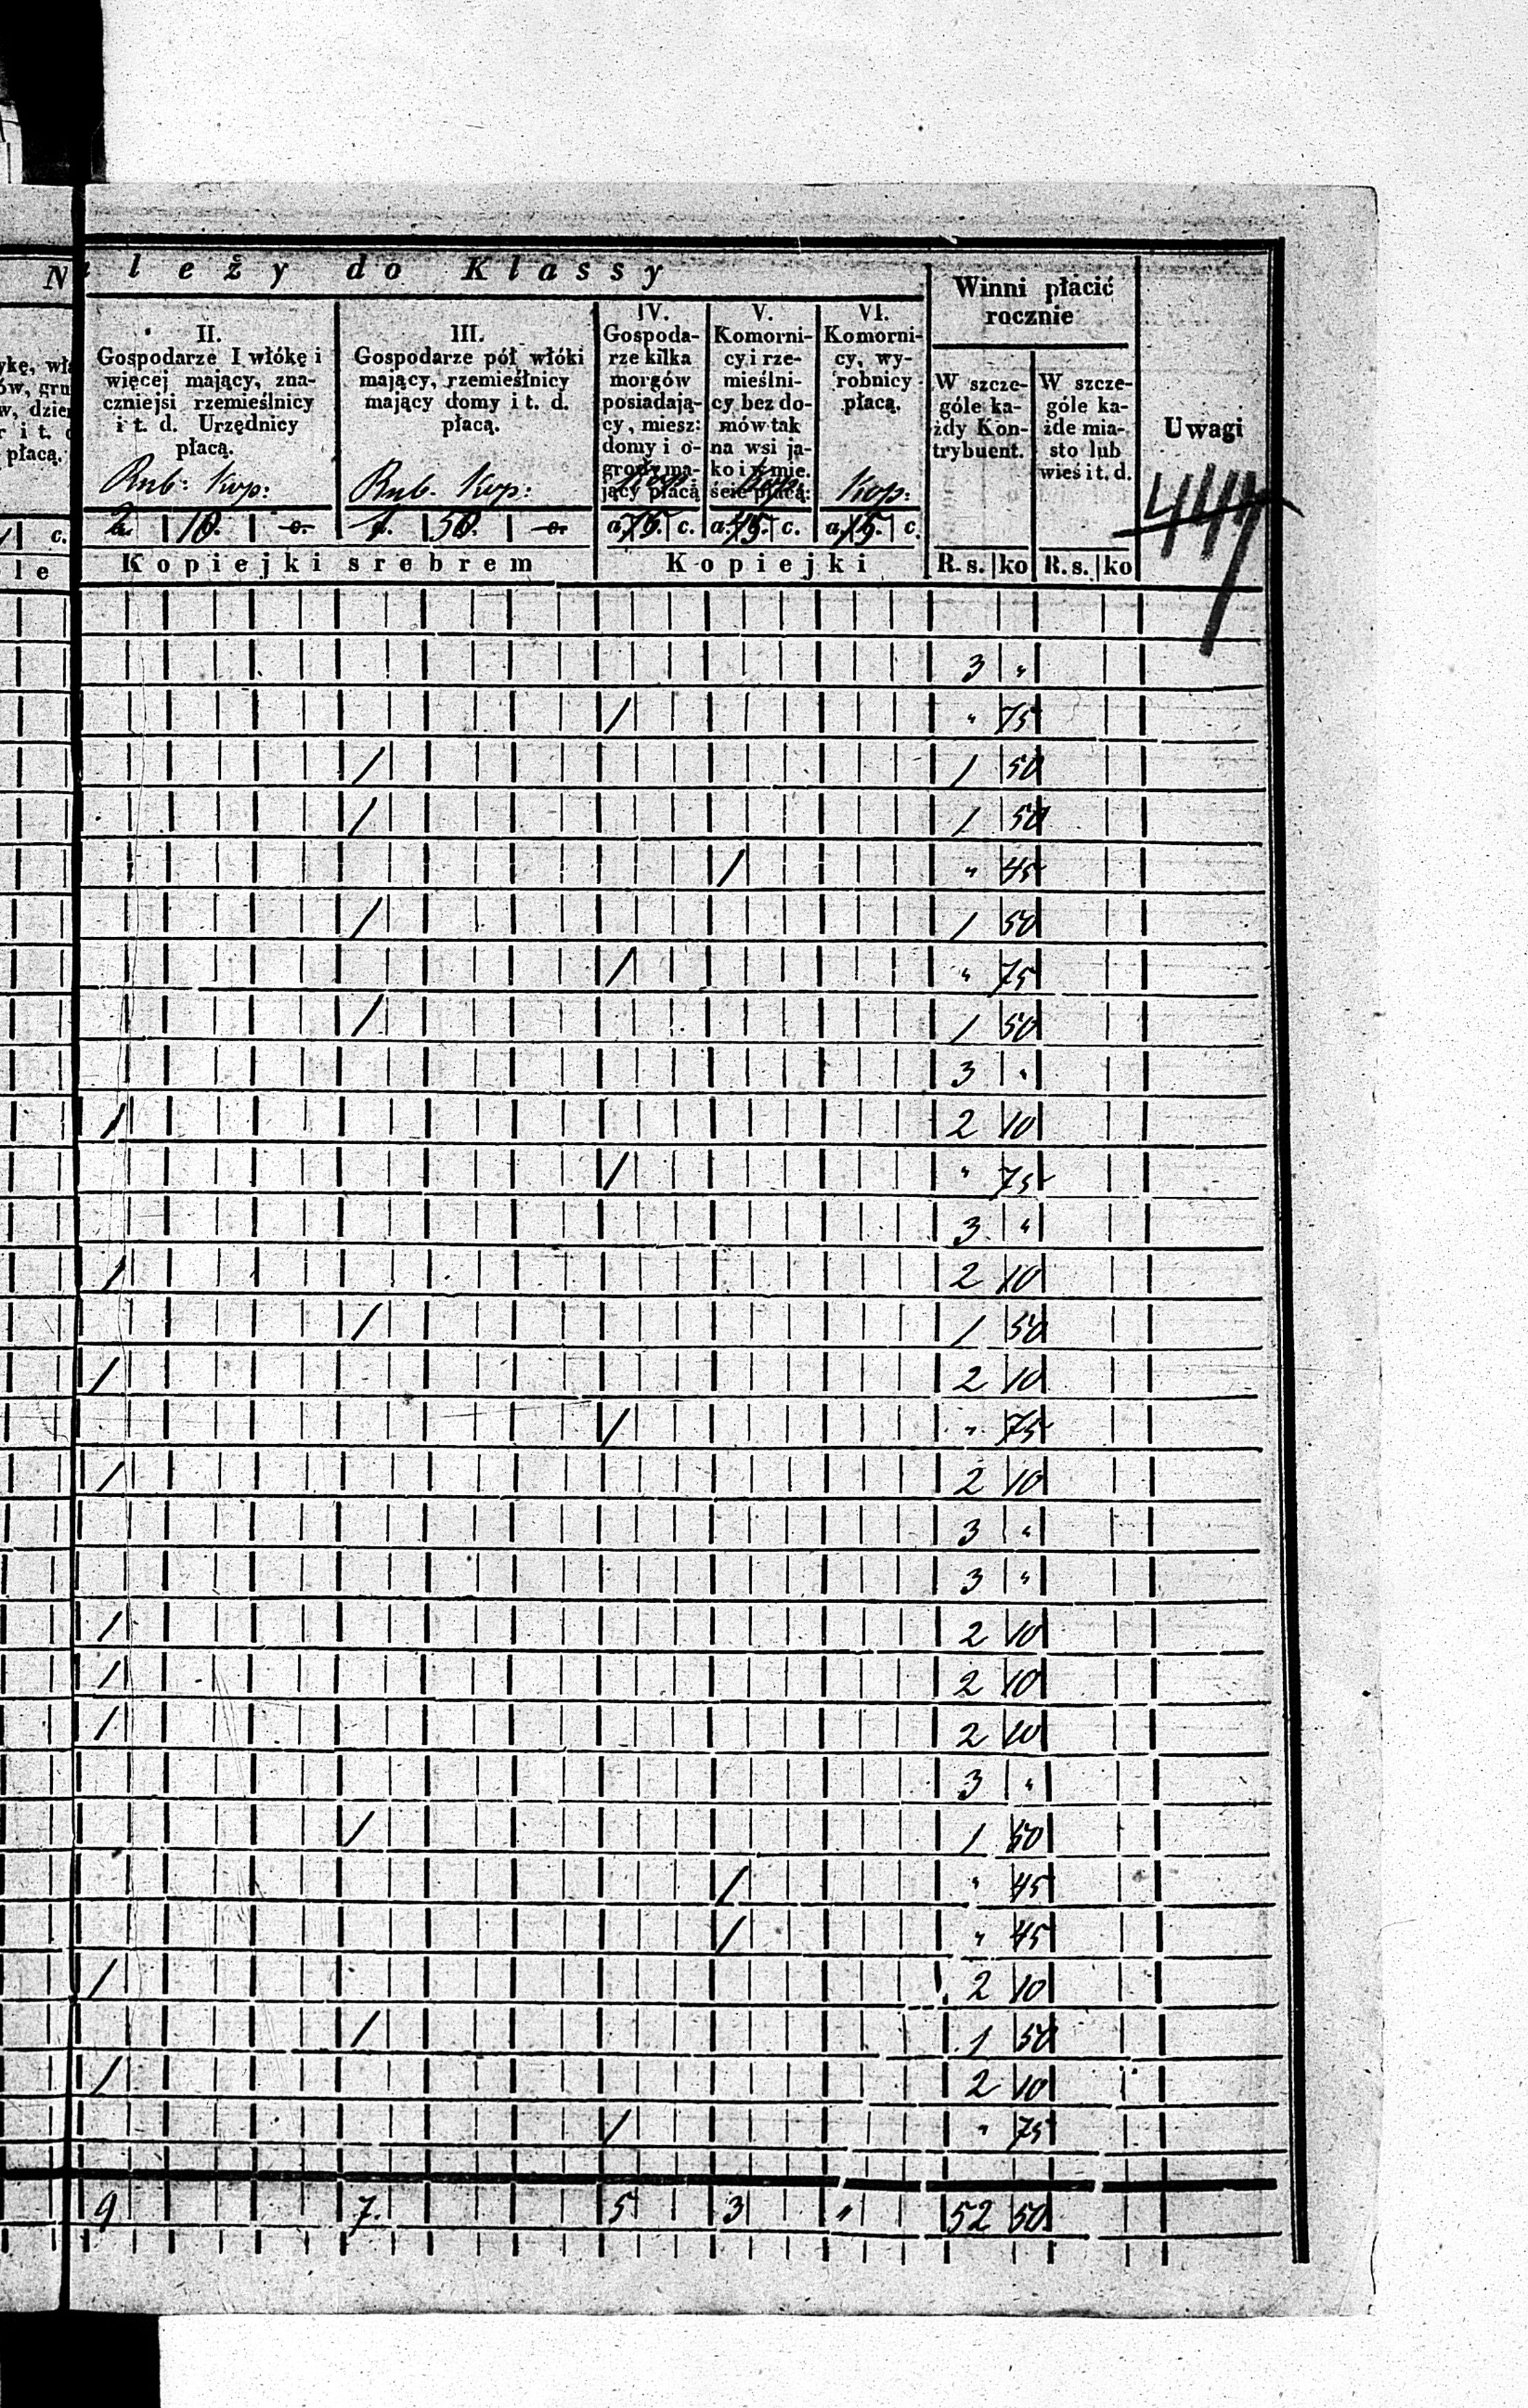 N
ależy do Klassy
Winni płacić
rocznie
Uwagi
447
II.
Gospodarze I włókę i
więcej mający, zna-
czniejsi rzemieślnicy
i t. d. Urzędnicy
płacą.
Rub: Kop:
2. 10. c.
III.
Gospodarze pół włóki
mający, rzemieślnicy
mający domy i t. d.
płacą.
Rub. Kop:
1. 50. c.
IV.
Gospoda-
rze kilka
morgów
posiadają-
cy, miesz:
domy i o-
grody ma-
jący płacą
Kop.
a. 75. c.
V.
Komorni-
cy i rze-
mieślni-
cy bez do-
mów tak
na wsi ja-
ko i w mie.
ście płacą:
Kop.
a. 45. c.
VI.
Komorni-
cy, wy-
robnicy
płacą.
Kop:
a. 15. c.
W szcze-
góle ka-
żdy Kon-
trybuent.
W szcze-
góle ka-
żde mia-
sto lub
wieś i t. d.
płacą.
c.
le
Kopiejki srebrem
Kopiejki
R. s. ko R. s. ko
3 "
/ " 75
/ 1 50
/ 1 50
/ " 45
/ 1 50
/ " 75
/ 1 50
3 "
/ 2 10
/ " 75
3 "
/ 2 10
/ 1 50
/ 2 10
/ " 75
/ 2 10
3 "
3 "
/ 2 10
/ 2 10
/ 2 10
3 "
/ 1 50
/ " 45
/ " 45
/ 2 10
/ 1 50
/ 2 10
/ " 75
9 7. 5 3 " 52 50